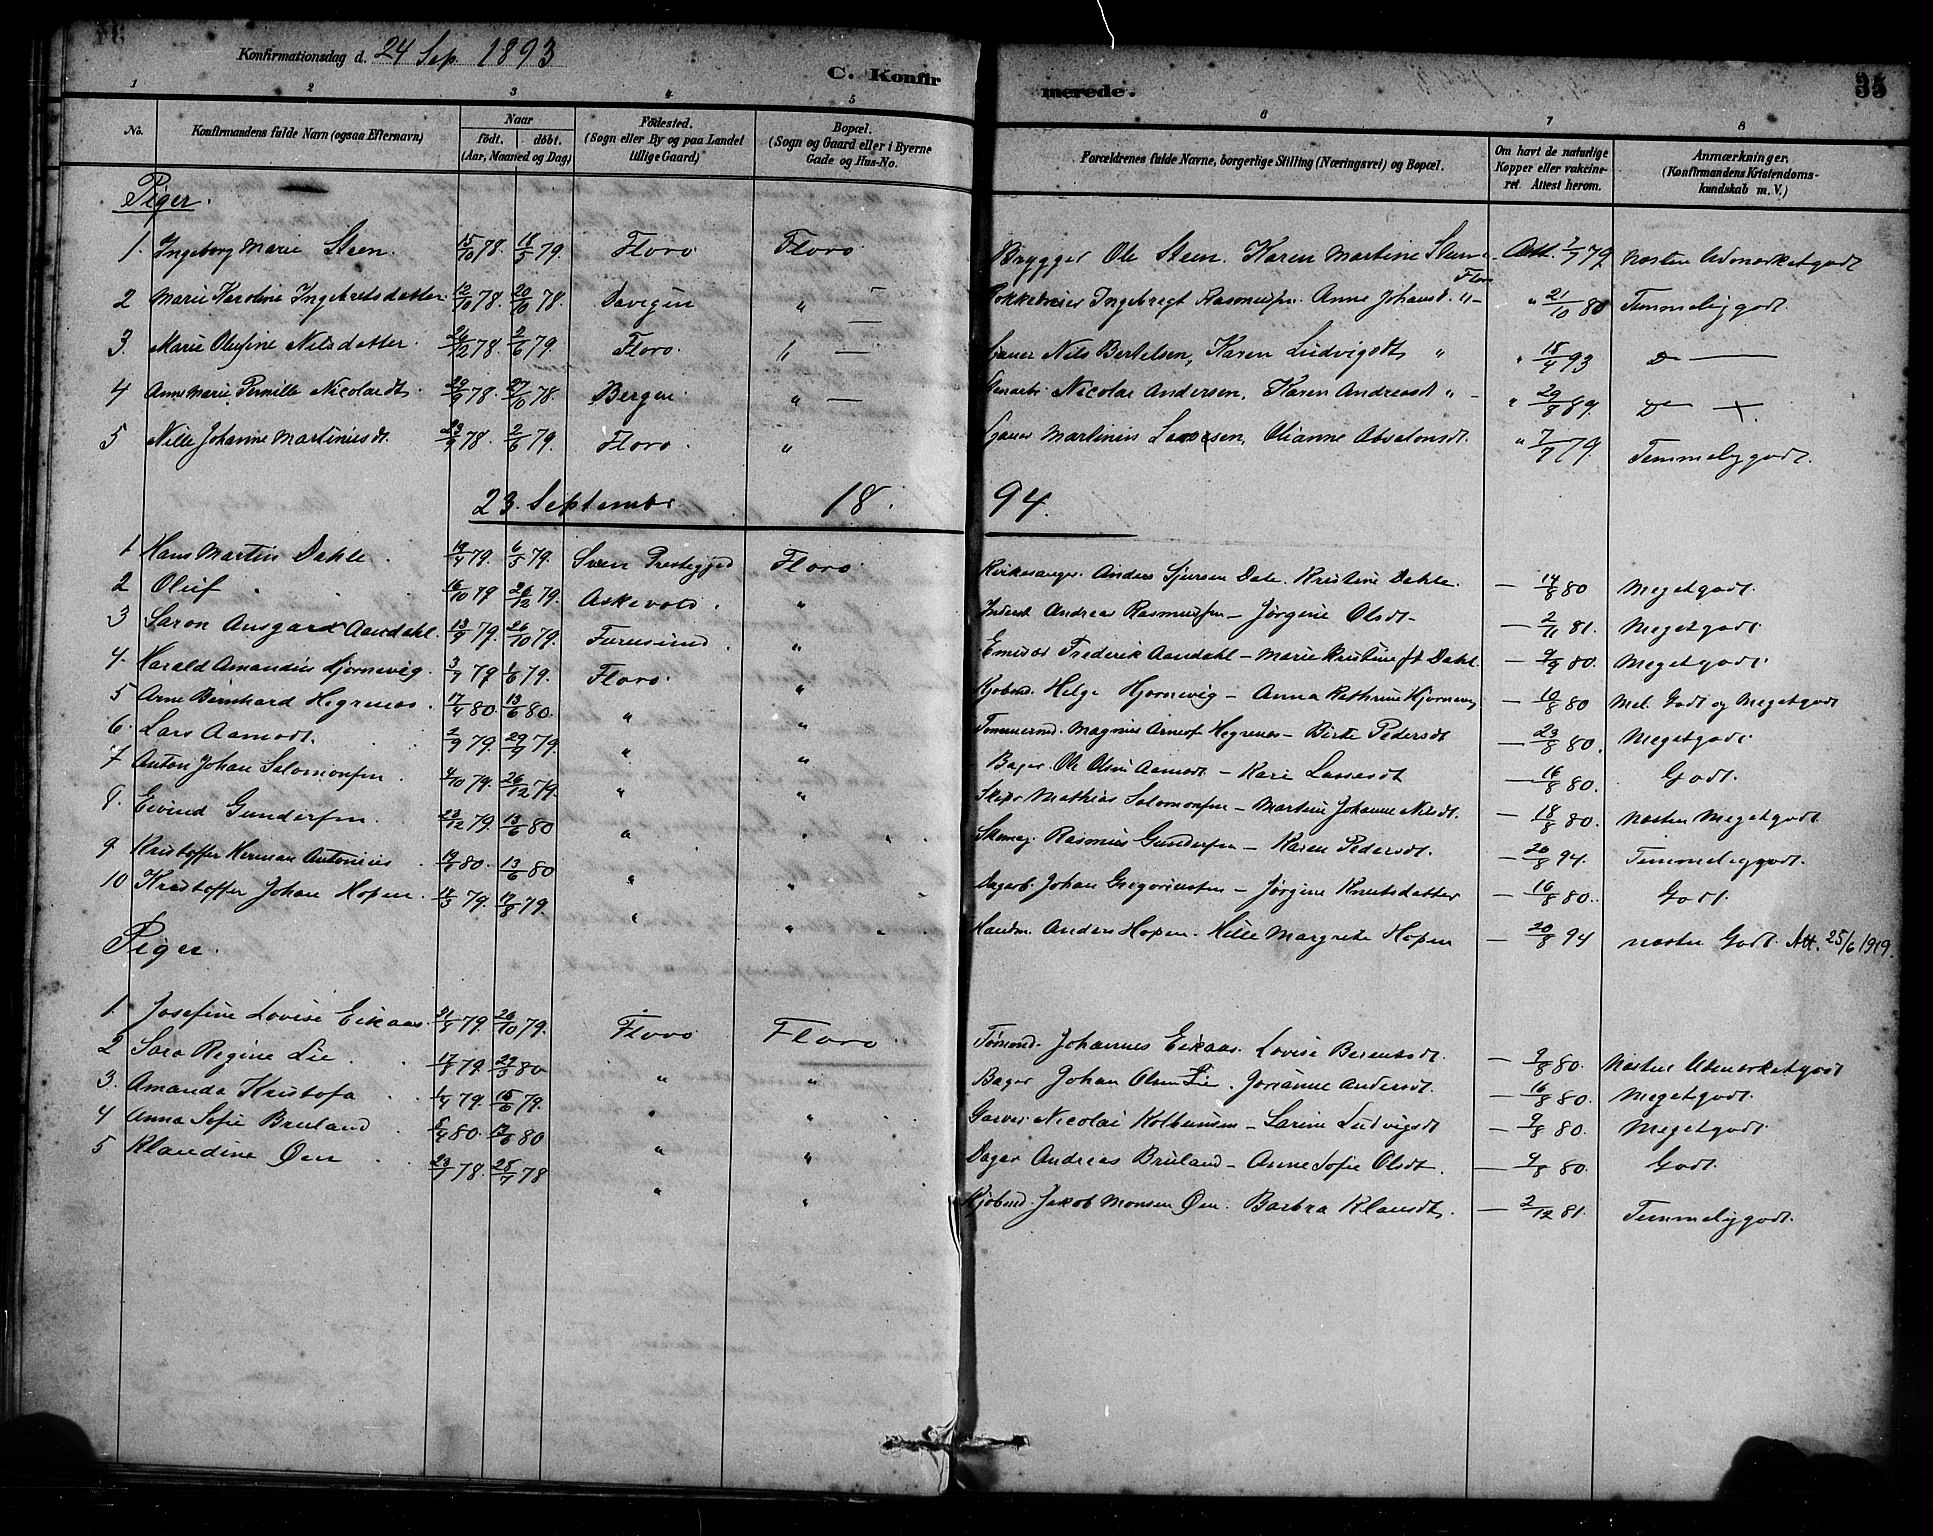 Konfirmationsdag d. 24 Sep. 1893
C. Konfirmerede.
35
1 2 3 4 5 6 7 8
No. Konfirmandens fulde Navn (ogsaa Efternavn) Naar født. døbt. (Aar, Maaned og Dag) Fødested. (Sogn eller By og paa Landet tillige Gaard) Bopæl. (Sogn og Gaard eller i Byerne Gade og Hus-No. Forældrenes fulde Navne, borgerlige Stilling (Næringsvei) og Bopæl. Om havt de naturlige Kopper eller vakcineret. Attest herom. Anmærkninger. (Konfirmandens Kristendomskundskab m. V.)
Piger.
1. Ingeborg Marie Steen. 15/10 78. 18/5 79. Florø Florø Brygger Ole Steen. Karen Martine Steen Florø Att. 7/7 79 Næsten Udmærketgodt
2 Marie Karoline Ingebretsdatter 12/10 78. 20/10 78. Davigen " — Ingebregt Rasmussen. Anne Johansd. "— " 21/10 80 Temmeliggodt
3. Marie Olufine Nilsdatter. 26/12 78. 2/6 79. Florø. " — Nils Bertelsen, Karen Ludvigsdt " " 15/4 93 D° —
4 Anne Marie Pernille Nicolaidt 29/9 78. 27/10 78. Bergen " — Nicolai Andersen, Karen Andreasdt "— " 29/8 89. D° —
5 Nille Johanne Martiniusdt. 23/9 78. 2/6 79. Florø. " Martinius Lassesen, Olianne Absalonsdt. " 7/7 79. Temmeliggodt.
23. Septembr 1894.
1 Hans Martin Dahle. 19/4 79. 6/5 79. Sveen Prestegjed Florø Kirkesanger. Anders Sjursen Dale. Kristine Dahle. — 14/8 80 Megetgodt.
2 Oluf. 16/10 79 26/12 79. Askevold. " Inderst Andreas Rasmussen — Jørgine Olsdt — — 2/11 81. Megetgodt.
3 Saron Ansgar Aandahl. 13/9 79. 26/10 79. Furusund. " Emissær Frederik Aandahl — Marie Kristine ft Dahl — 9/9 80. Megetgodt
4. Harald Amandus Hjørnevig. 3/7 79 1/6 79. Florø. " Kjøbmd. Helge Hjørnevig — Anna Kathrine Hjørnevig — 10/8 80 Mel. Godt og Megetgodt
5 Arne Bernhard Hegrenæs. 17/4 80. 13/6 80. " " Tømmermd. Magnus Arnesf Hegrenes — Birte Pedersdt — 23/8 80. Megetgodt
6. Lars Aamodt. 2/9 79. 29/9 79. " " Bager. Ole Olsen Aamodt — Kari Lassesdt — 16/8 80. Godt.
7 Anton Johan Salomonsen. 4/10 79. 26/12 79. " " Skipr Mathias Salomonsen — Martine Johanne Nilsdt. — 18/8 80. Næsten Megetgodt
8. Eivind Gundersen. 23/12 79. 13/6 80 " " Skomag. Rasmus Gundersen — Karen Pedersdt. — 20/8 94. Temmeliggodt.
9 Kristoffer Herman Antonius 19/1 80. 13/6 80 " " Dagarb. Johan Gregoriussen — Jørgine Knutsdatter — 16/8 80. Godt.
10 Kristoffer Johan Hopen. 12/5 79. 17/8 79. " " Handm. Anders Hopen. Nille Margrete Hopen — 20/8 94 næsten Godt. Att. 25/6 1919.
Piger.
1. Josefine Lovise Eikaas. 21/8 79. 26/10 79. Florø Florø Tømmd. Johannes Eikaas. Lovise Berentsdt. — 9/8 80. Næsten Udmærketgodt
2 Sara Regine Lie. 17/8 79. 29/3 80 " " Bager Johan Olsen Lie. Jorianne Andersdt. — 16/8 80. Megetgodt.
3. Amanda Kristofa 1/4 79. 15/6 79. " " Garver. Nicolai Kolbensen — Sarine Ludvigsdt — 9/8 80. Megetgodt.
4 Anna Sofie Bruland 5/4 80. 13/6 80 " " Dagar Andreas Bruland — Anne Sofie Olsdt. — 9/8 80. Godt.
5 Klaudine Øen 23/7 78. 28/7 78 " " Kjøbmd. Jakob Monsen Øen. Barbra Klausdt. — 2/12 81. Temmeliggodt.